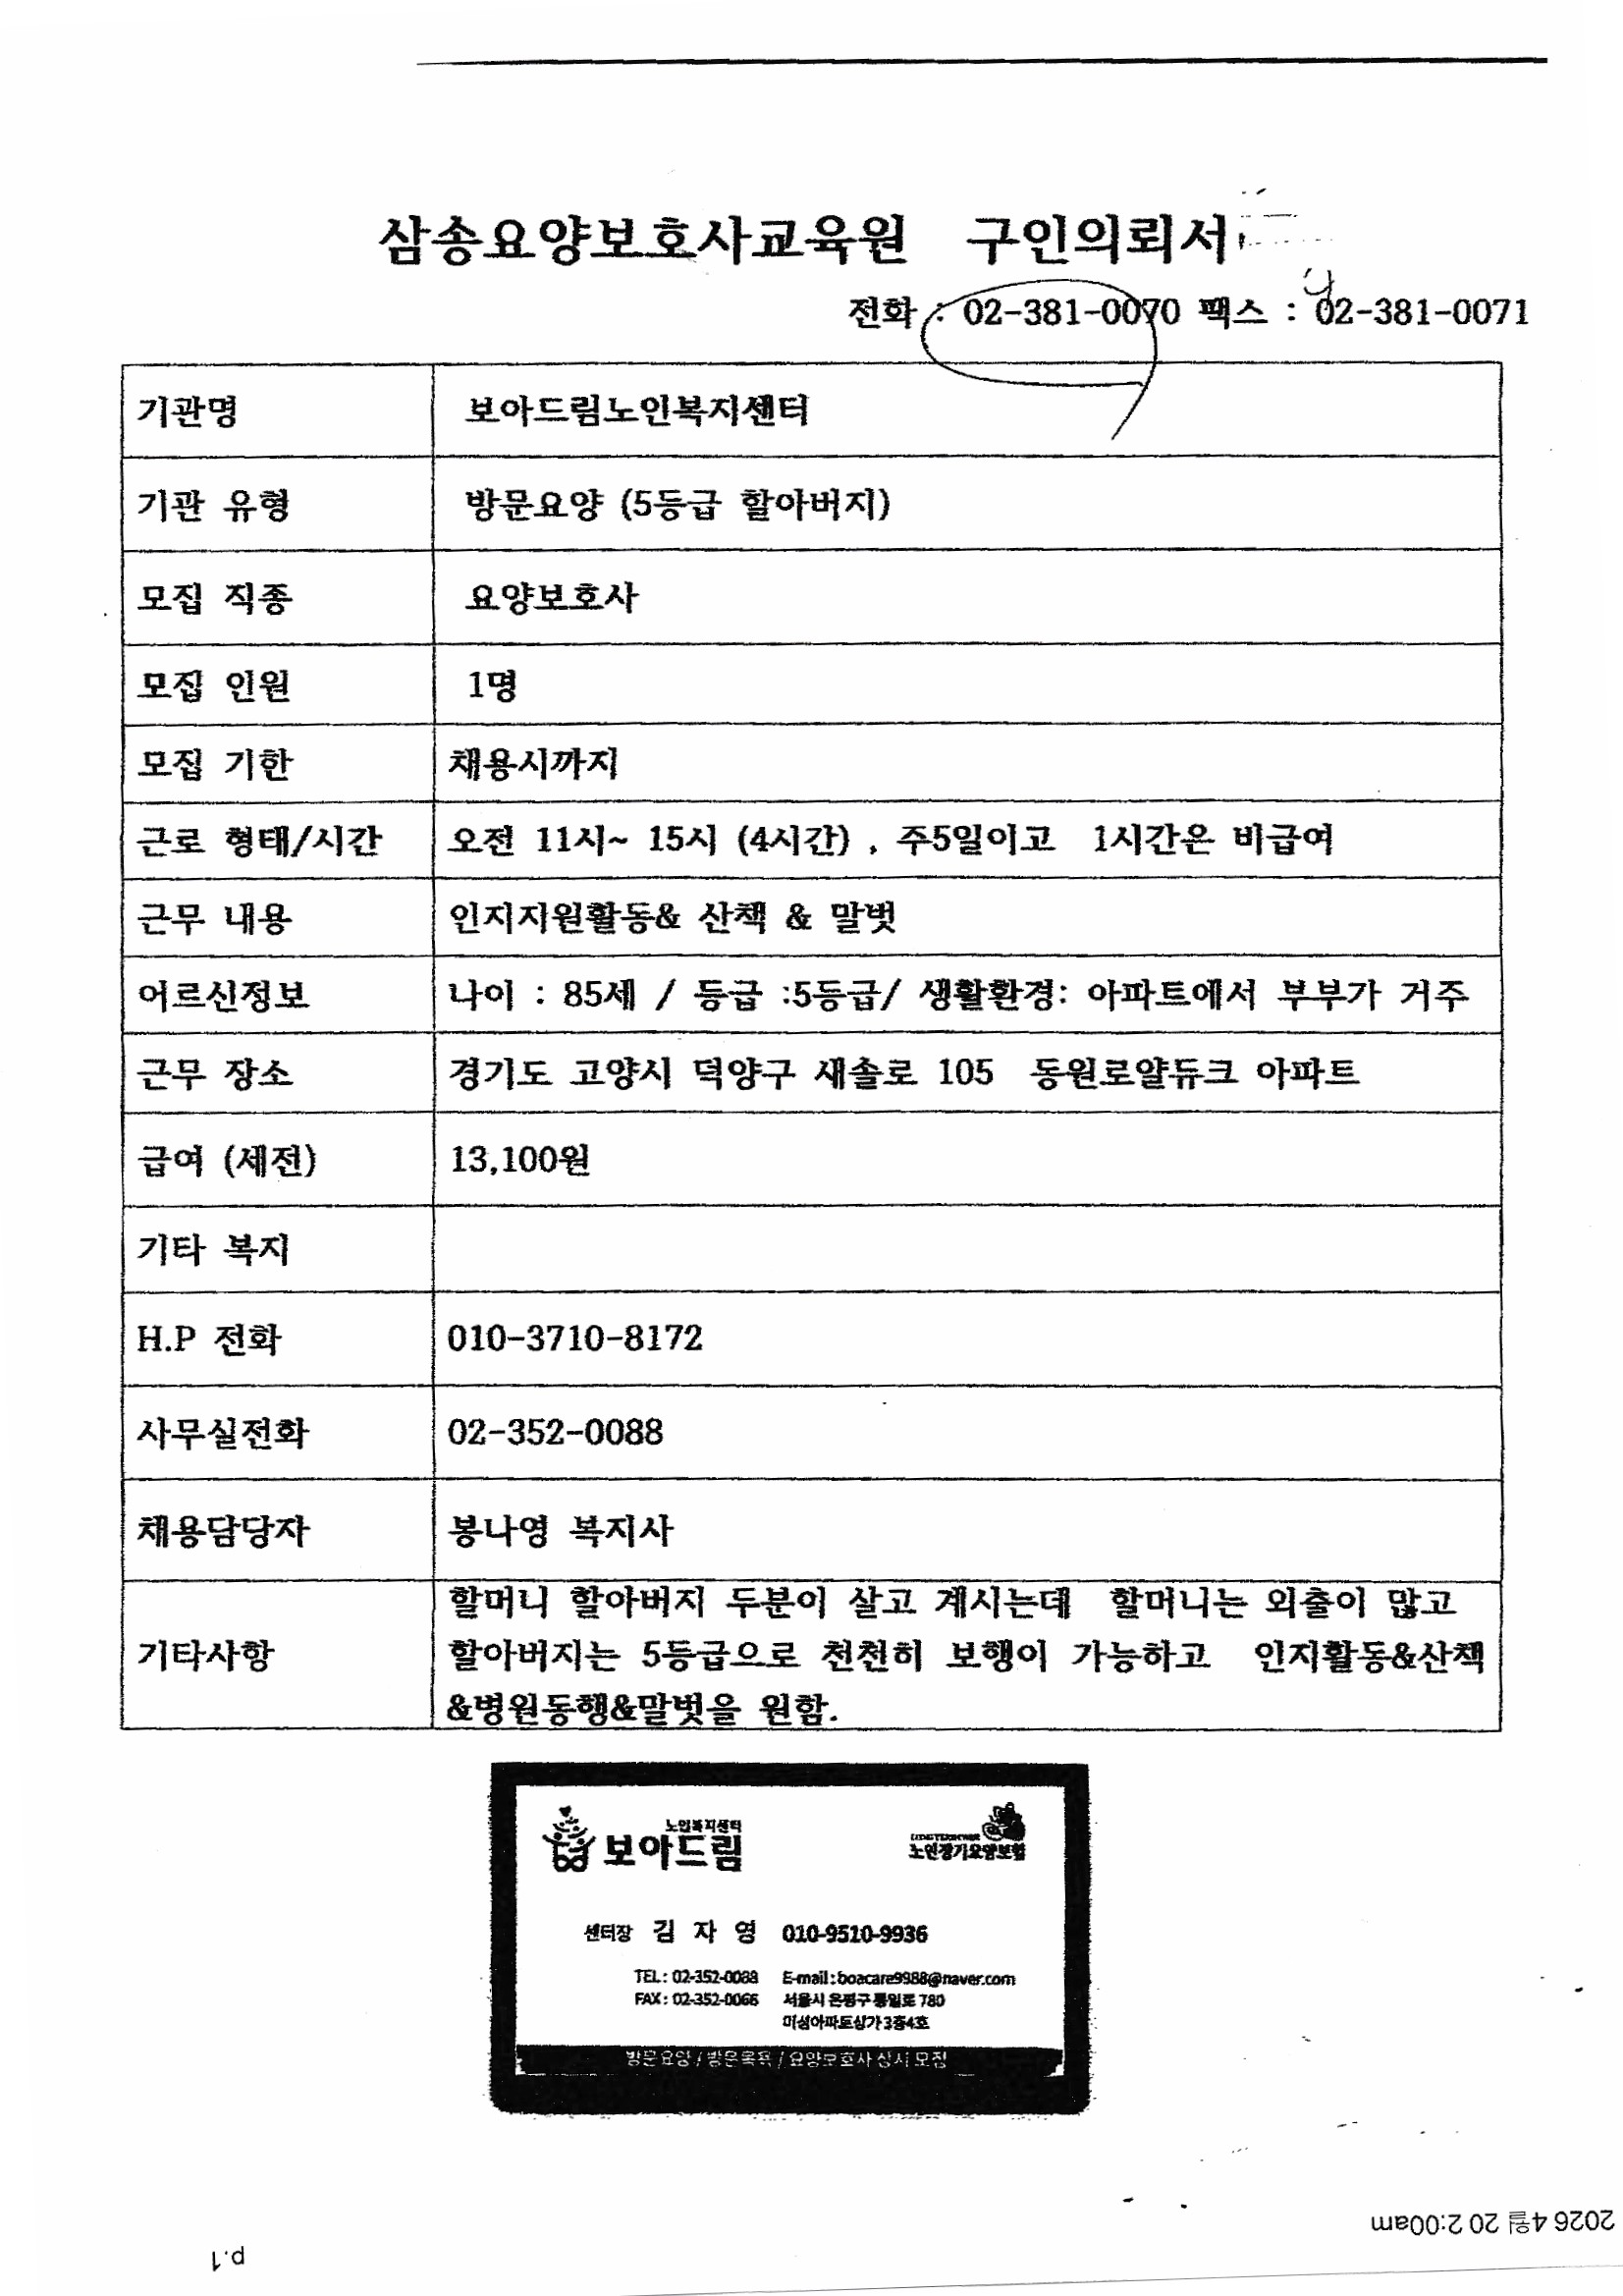 삼송요양보호사교육원 구인의뢰서
전화 : 02-381-0070 팩스 : 02-381-0071
기관명 보아드림노인복지센터
기관 유형 방문요양 (5등급 할아버지)
모집 직종 요양보호사
모집 인원 1명
모집 기한 채용시까지
근로 형태/시간 오전 11시~ 15시 (4시간) , 주5일이고 1시간은 비급여
근무 내용 인지지원활동& 산책 & 말벗
어르신정보 나이 : 85세 / 등급 :5등급/ 생활환경: 아파트에서 부부가 거주
근무 장소 경기도 고양시 덕양구 새솔로 105 동원로얄듀크 아파트
급여 (세전) 13,100원
기타 복지
H.P 전화 010-3710-8172
사무실전화 02-352-0088
채용담당자 봉나영 복지사
할머니 할아버지 두분이 살고 계시는데 할머니는 외출이 많고
기타사항 할아버지는 5등급으로 천천히 보행이 가능하고 인지활동&산책
&병원동행&말벗을 원함.
노인복지센터
보아드림
노인장기요양보험
센터장 김 자 영 010-9510-9936
TEL : 02-352-0088 E-mail : boacare9988@naver.com
FAX : 02-352-0066 서울시 은평구 통일로 780
미성아파트상가 3층4호
방문요양 / 방문목욕 / 요양보호사 상시 모집
2026 4월 20 2:00am
p.1